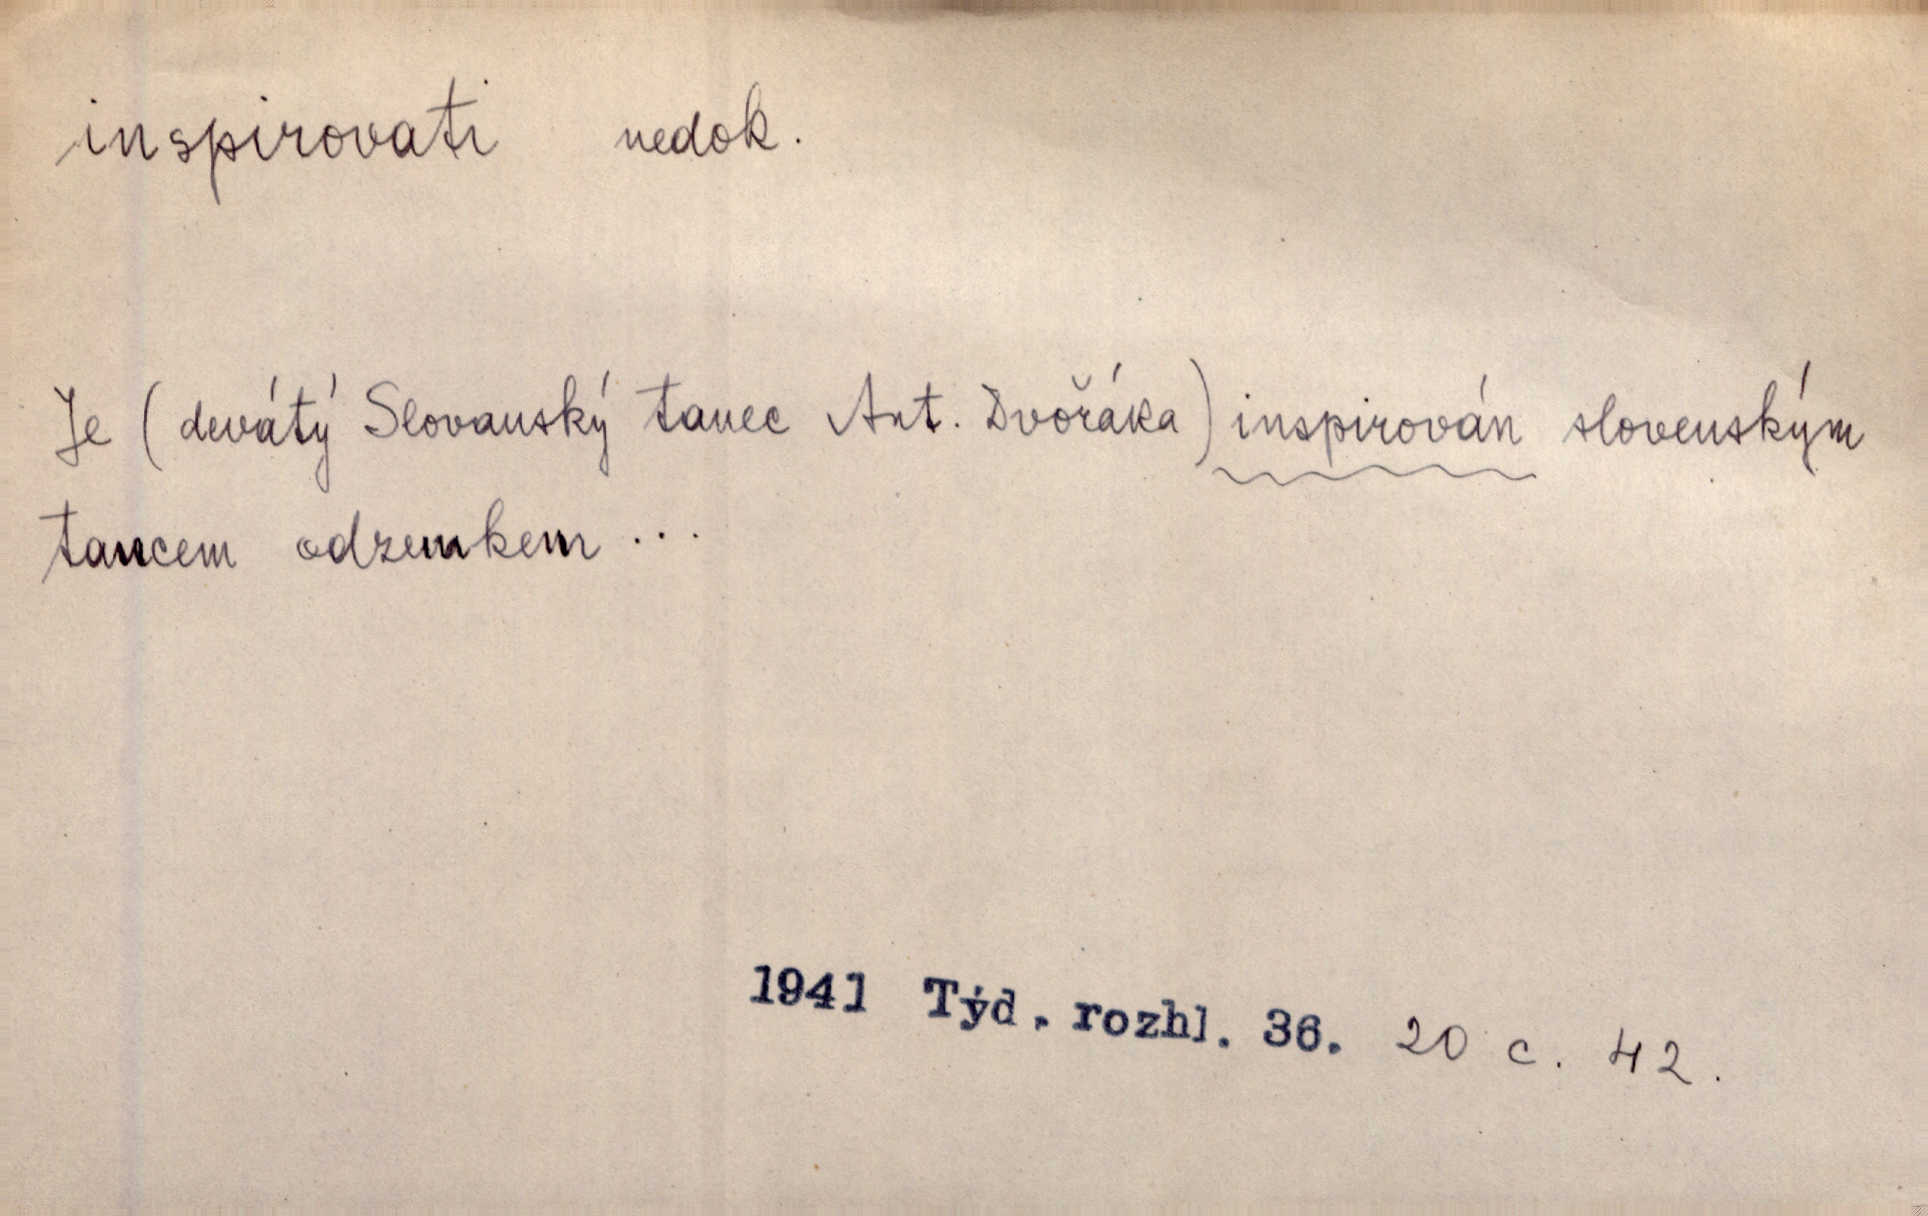 inspirovati nedok.
Je (devátý Slovanský tanec Ant. Dvořáka) inspirován slovenským
tancem odzemkem ...
1941 Týd. rozhl. 36. 20 c. 42.